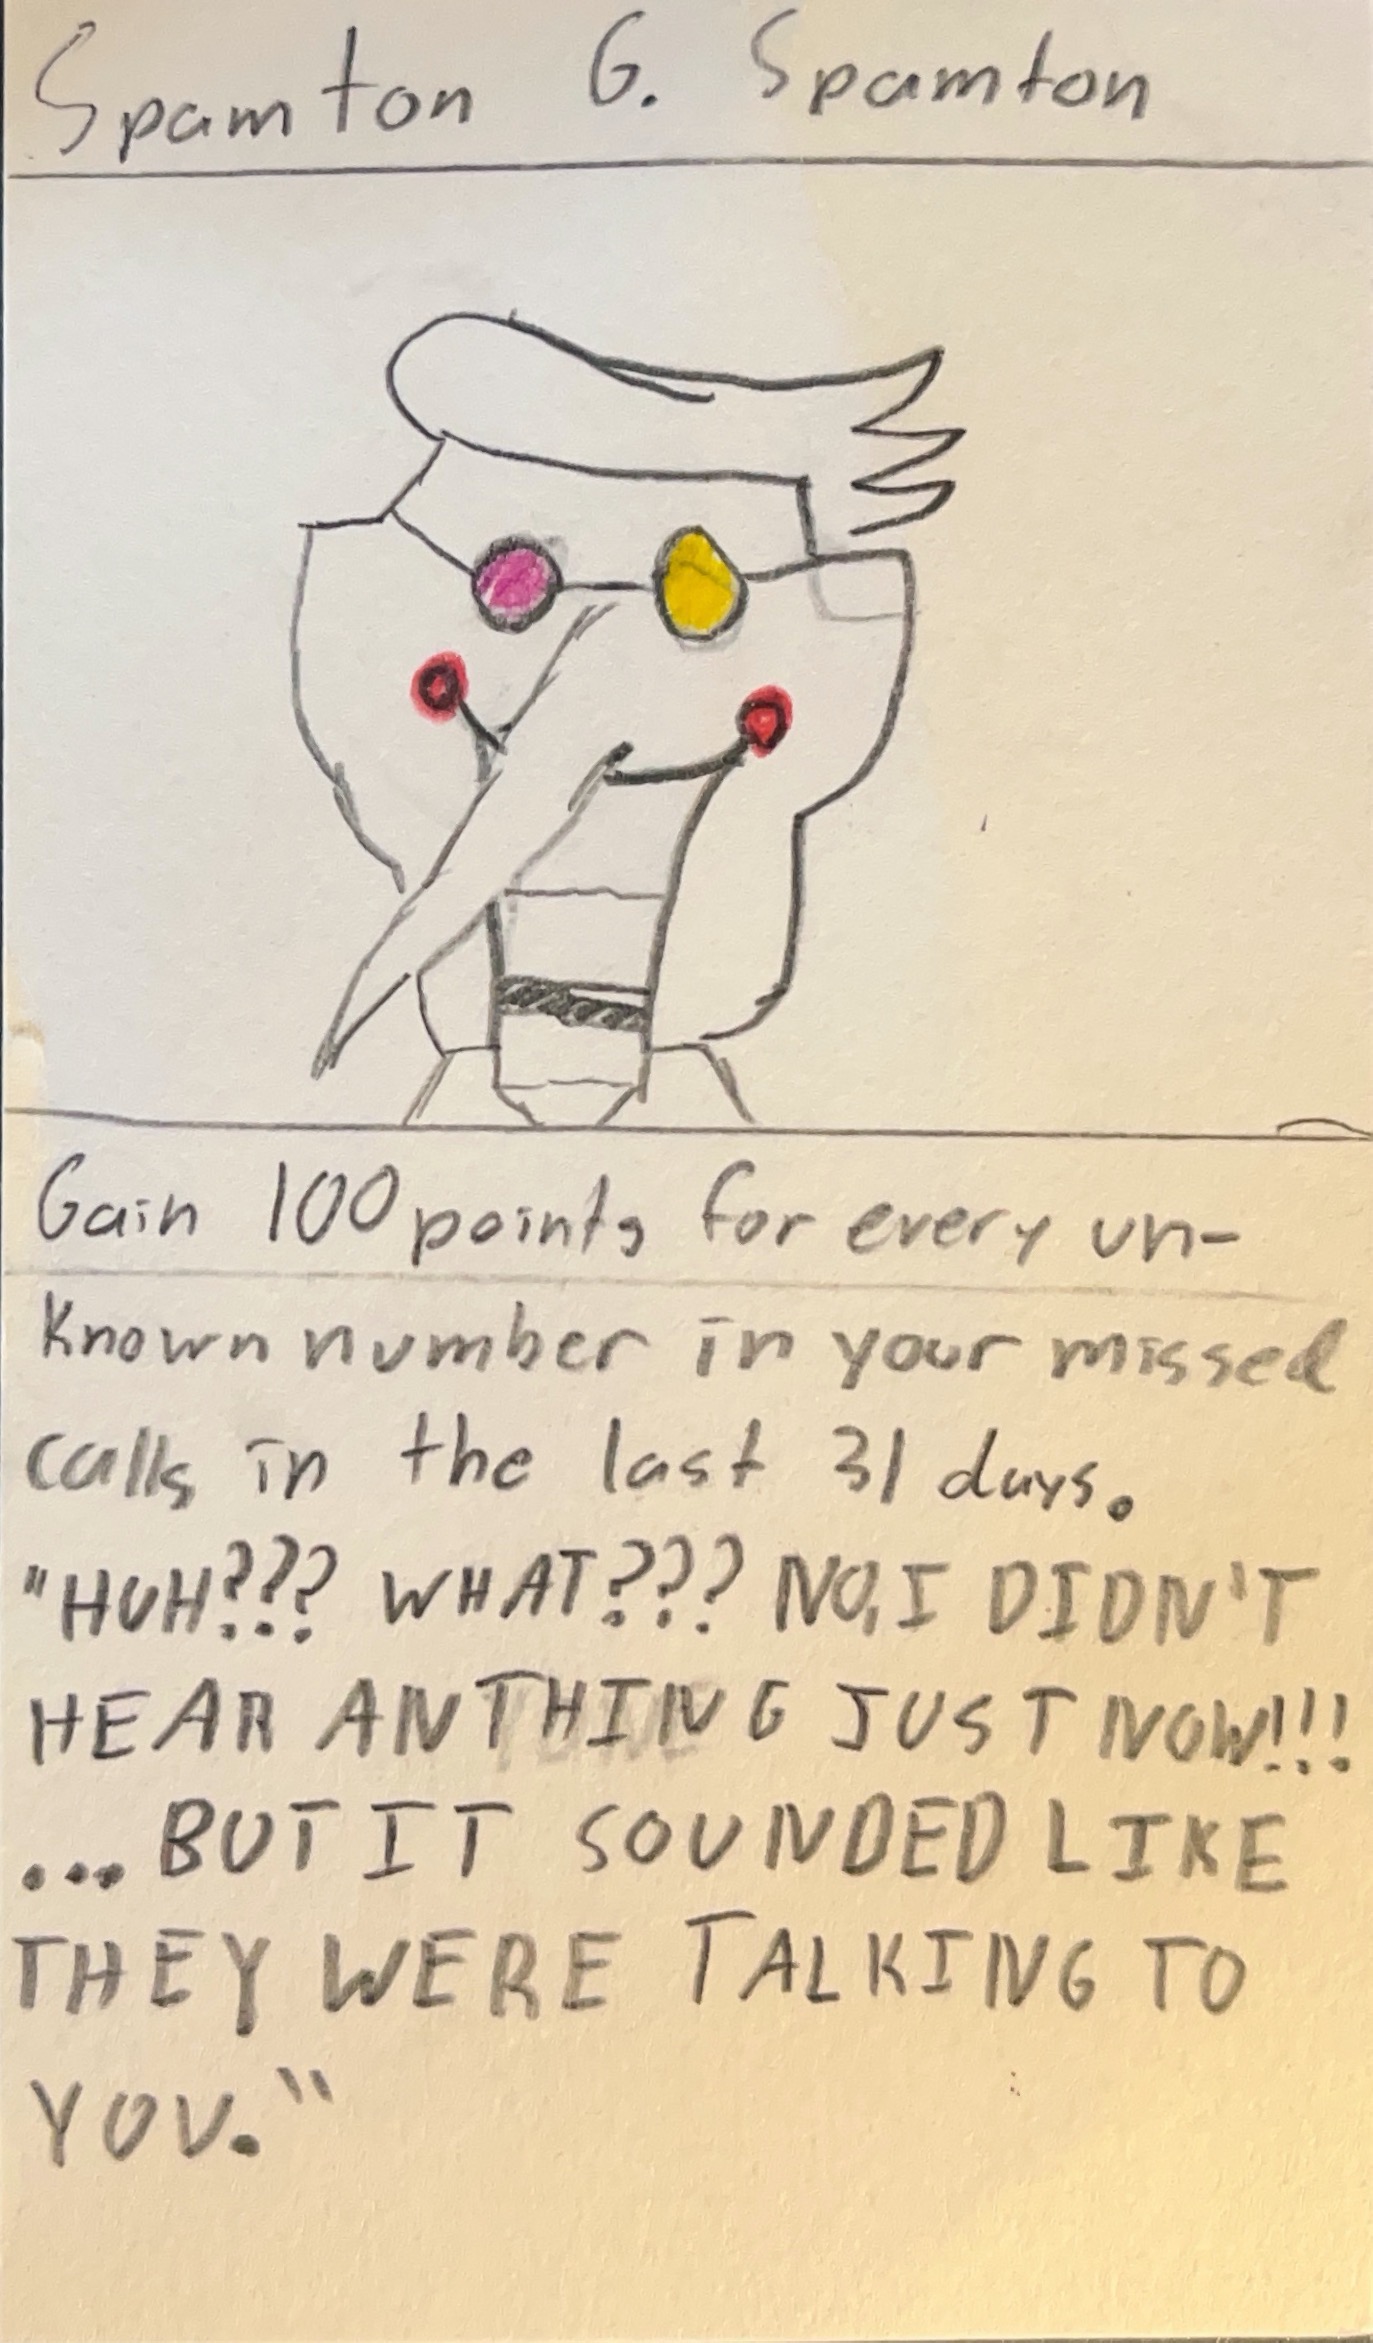 Spamton G. Spamton
Gain 100 points for every un-
known number in your missed
calls in the last 31 days.
"HUH??? WHAT??? NO, I DIDN'T
HEAR ANTHING JUST NOW!!!
...BUT IT SOUNDED LIKE
THEY WERE TALKING TO
YOU."